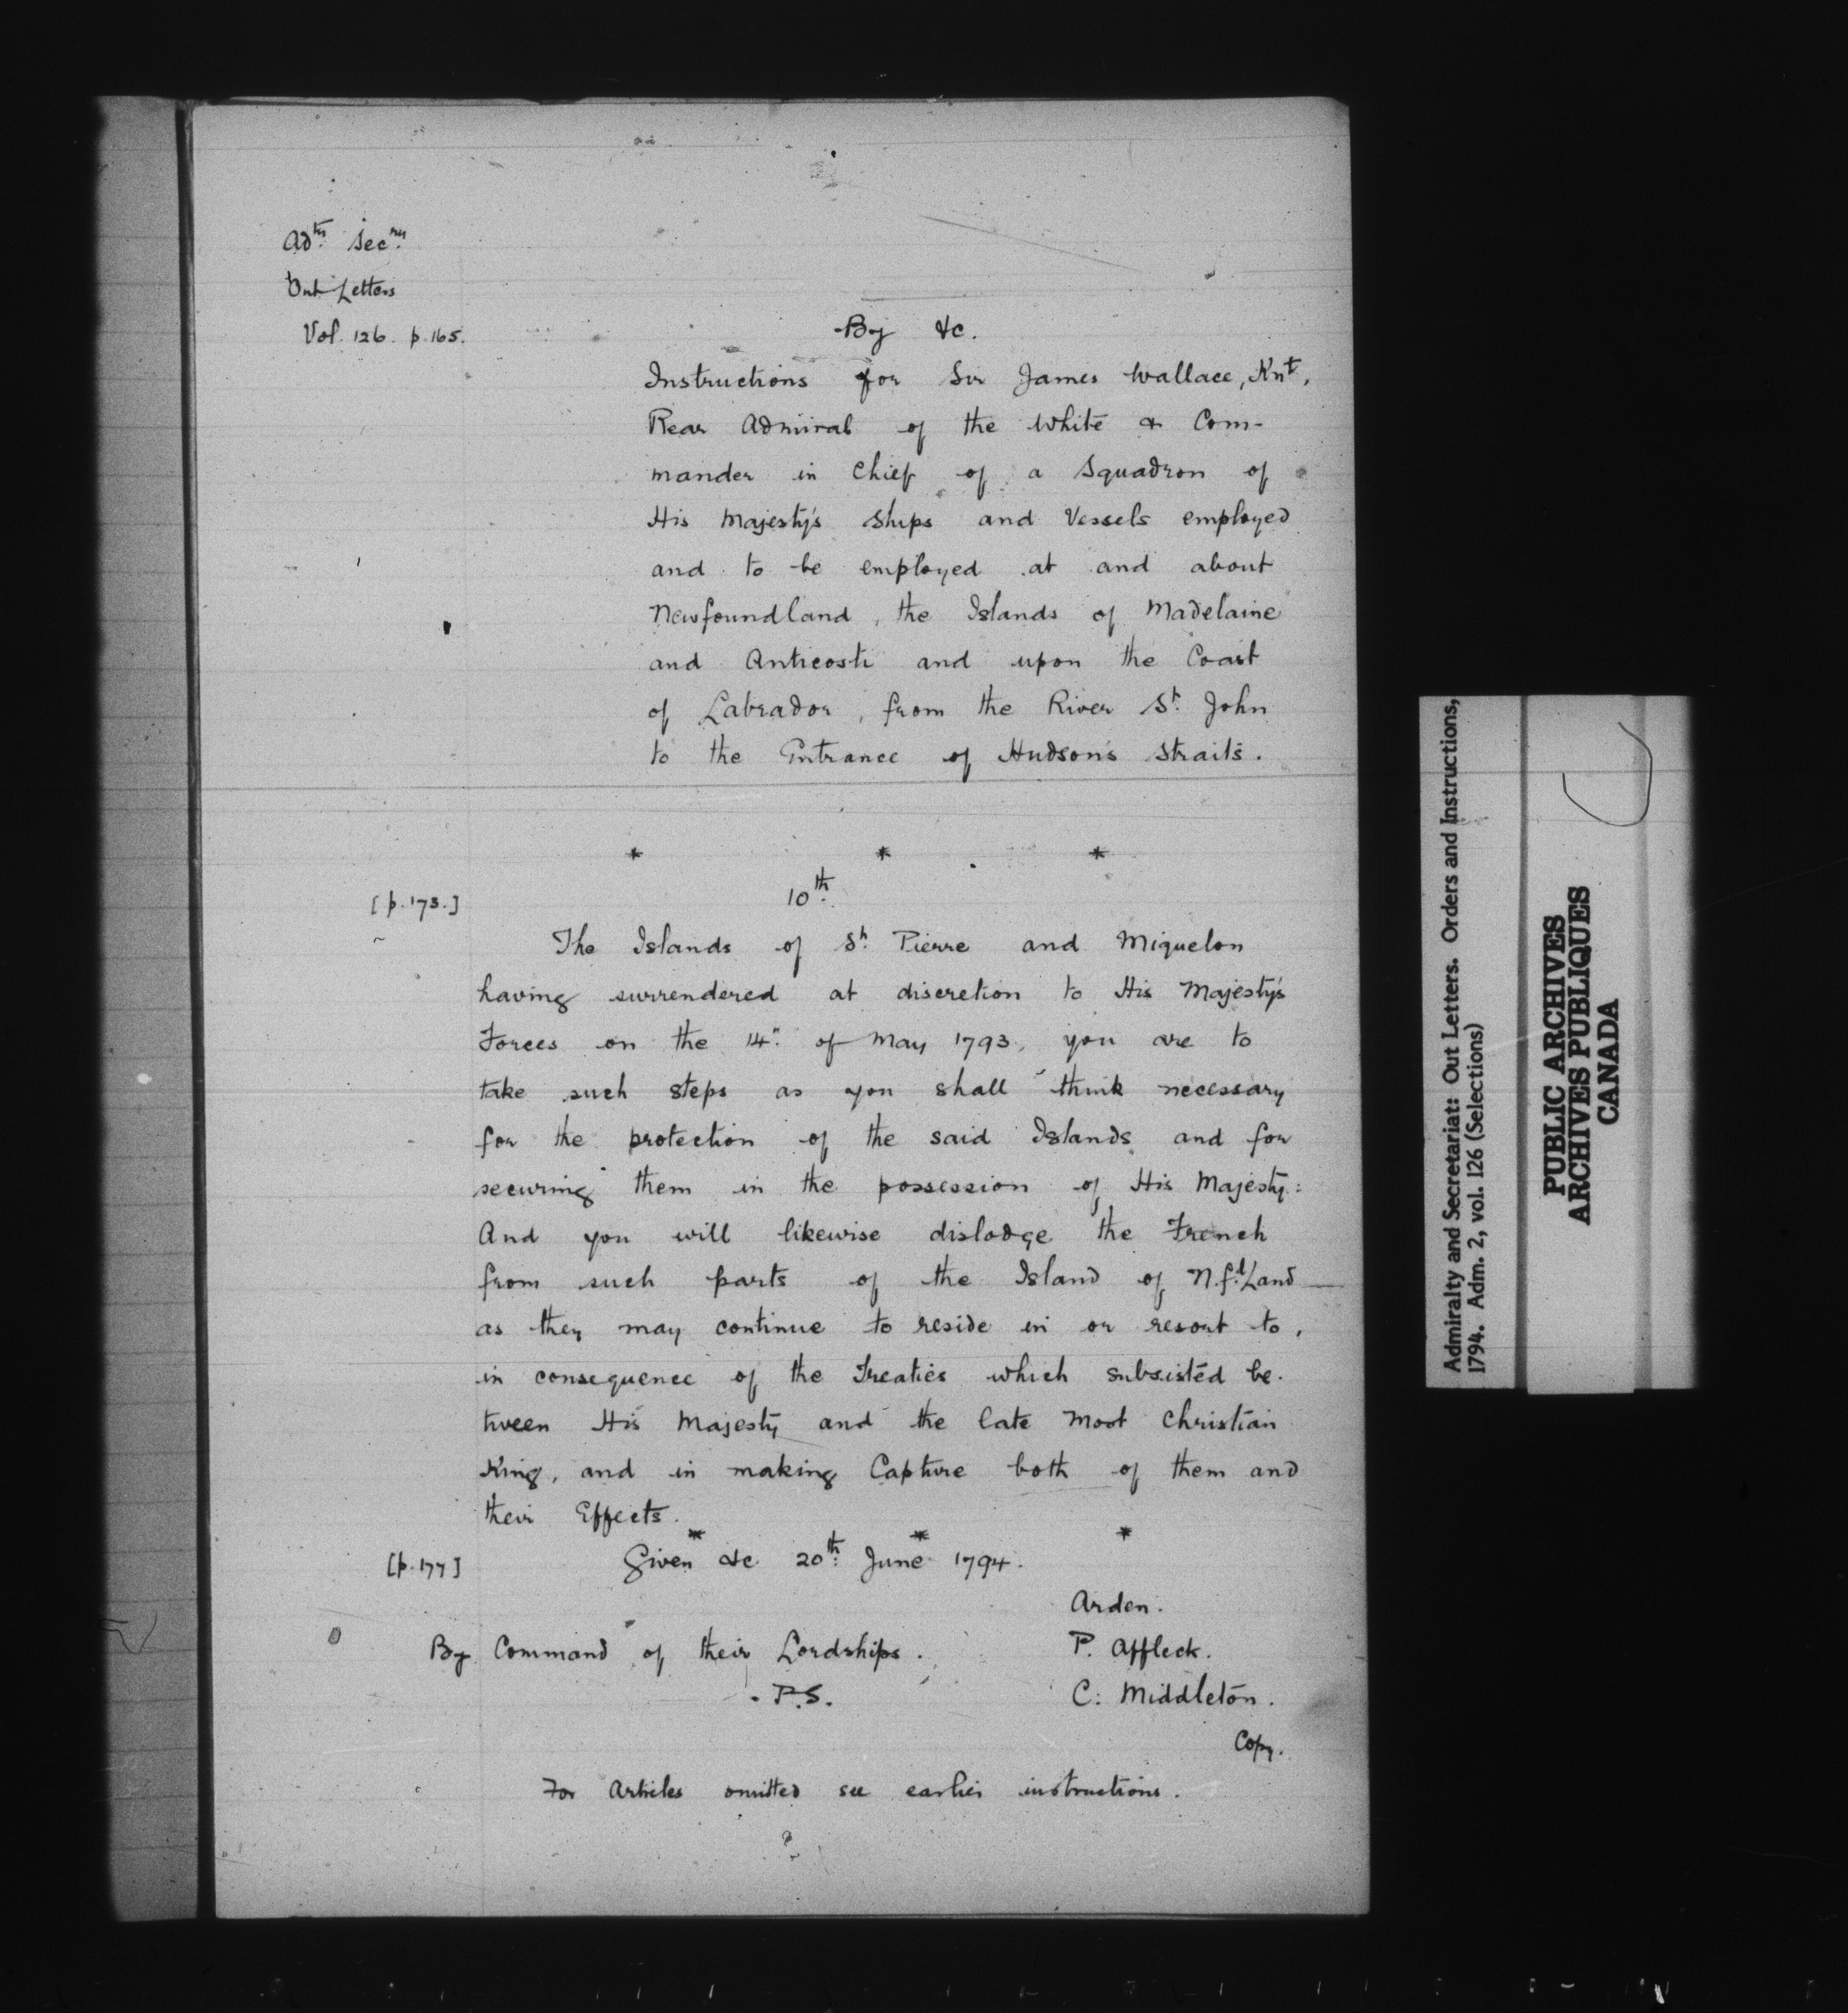 Adty. Secry.
Out-Letters
Vol. 126. p. 165.
By &c.
Instructions for Sir James Wallace, Knt,
Rear Admiral of the White & Com-
mander in Chief of a Squadron of
His Majesty's Ships and Vessels employed
and to be employed at and about
Newfoundland, the Islands of Madelaine
and Anticosti and upon the Coast
of Labrador, from the River St. John
to the Entrance of Hudson's Straits.
* * *
[p. 173.]
10th.
The Islands of St. Pierre and Miquelon
having surrendered at discretion to His Majesty's
Forces on the 14th. of May 1793, you are to
take such steps as you shall think necessary
for the protection of the said Islands and for
securing them in the possession of His Majesty:
And you will likewise dislodge the French
from such parts of the Island of N.fd.Land
as they may continue to reside in or resort to,
in consequence of the Treaties which subsisted be-
tween His Majesty and the late Most Christian
King, and in making Capture both of them and
their Effects.
* * *
[p. 177]
Given &c 20th. June 1794.
Arden.
By Command of their Lordships. P. Affleck.
P.S. C: Middleton.
Copy.
For Articles omitted see earlier instructions.
?
Admiralty and Secretariat: Out Letters. Orders and Instructions,
1794. Adm. 2, vol. 126 (Selections)
PUBLIC ARCHIVES
ARCHIVES PUBLIQUES
CANADA